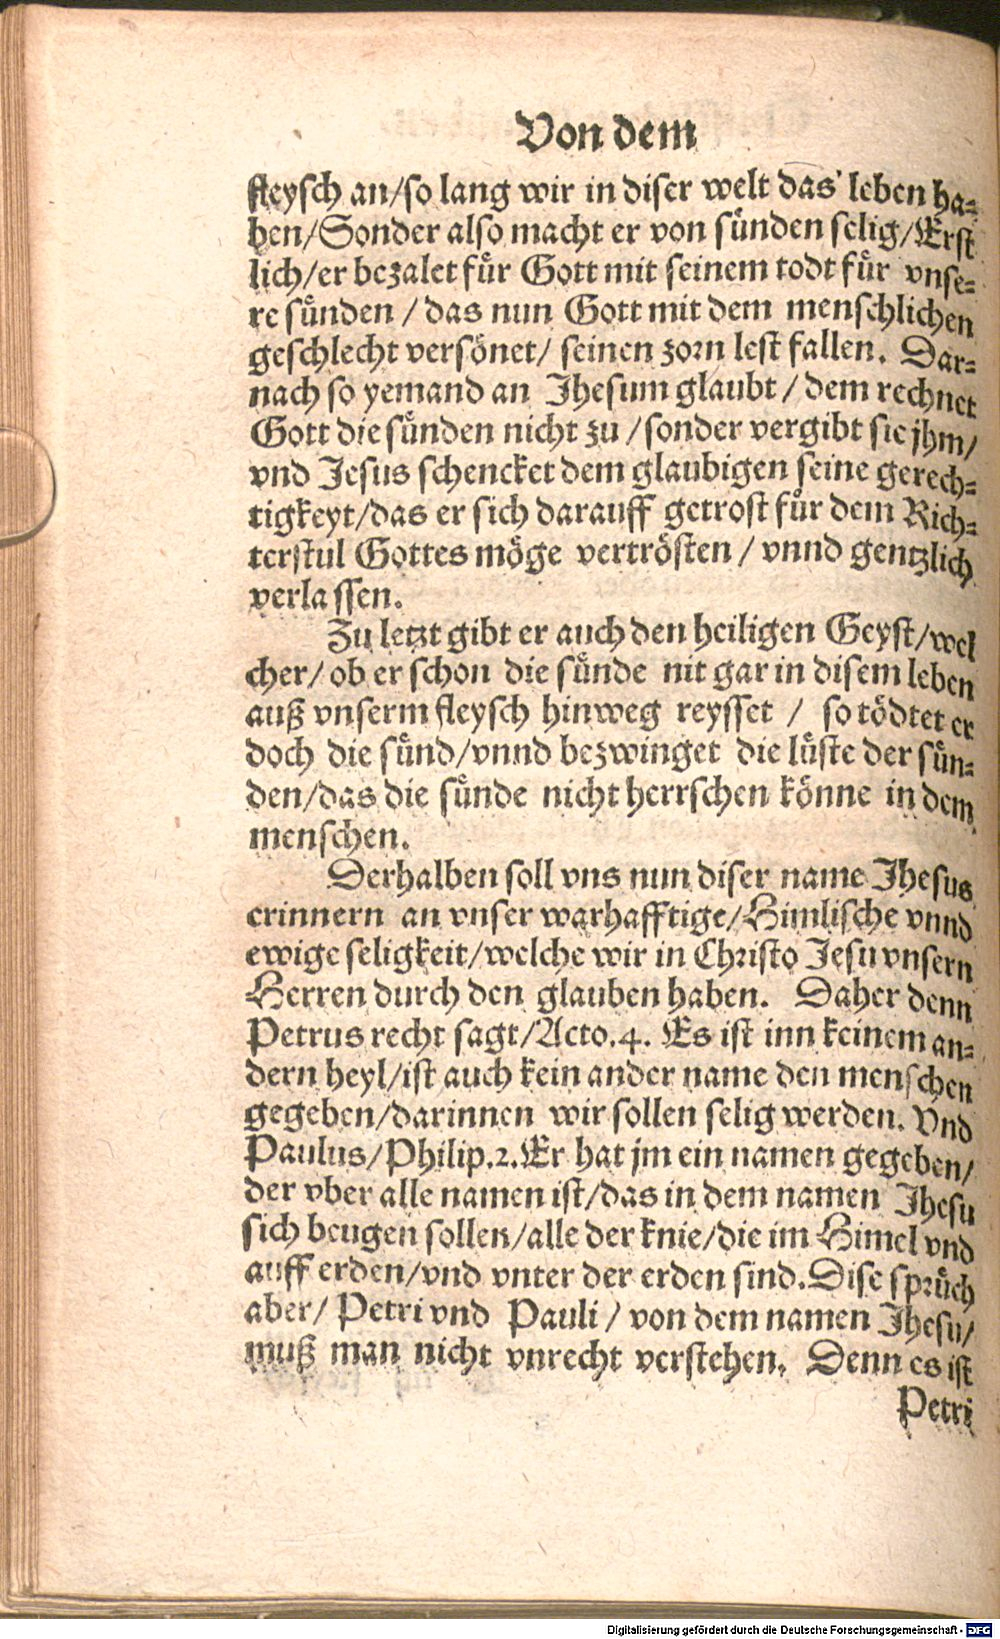 Von dem
fleysch an/so lang wir in diser welt das leben ha⸗
ben/Sonder also macht er von sünden selig/Erst
lich/er bezalet für Gott mit seinem todt für vnse⸗
re sünden / das nun Gott mit dem menschlichen
geschlecht versönet/ seinen zorn lest fallen. Dar⸗
nach so yemand an Jhesum glaubt / dem rechnet
Gott die sünden nicht zu /sonder vergibt sie jhm/
vnd Jesus schencket dem glaubigen seine gerech⸗
tigkeyt/das er sich darauff getrost für dem Rich⸗
terstul Gottes möge vertrösten / vnnd gentzlich
verlassen.
Zu letzt gibt er auch den heiligen Geyst/wel
cher/ ob er schon die sünde nit gar in disem leben
auß vnserm fleysch hinweg reysset / so tödtet er
doch die sünd/vnnd bezwinget die lüste der sün⸗
den/das die sünde nicht herrschen könne in dem
menschen.
Derhalben soll vns nun diser name Jhesus
erinnern an vnser warhafftige/Himlische vnnd
ewige seligkeit/welche wir in Christo Jesu vnsern
Herren durch den glauben haben. Daher denn
Petrus recht sagt/Acto.4. Es ist inn keinem an⸗
dern heyl/ist auch kein ander name den menschen
gegeben/darinnen wir sollen selig werden. Vnd
Paulus/Philip.2.Er hat jm ein namen gegeben/
der vber alle namen ist/das in dem namen Jhesu
sich beugen sollen/alle der knie/die im Himel vnd
auff erden/vnd vnter der erden sind.Dise sprüch
aber/ Petri vnd Pauli / von dem namen Jhesu/
muß man nicht vnrecht verstehen. Denn es ist
Petri
Digitalisierung gefördert durch die Deutsche Forschungsgemeinschaft - DFG